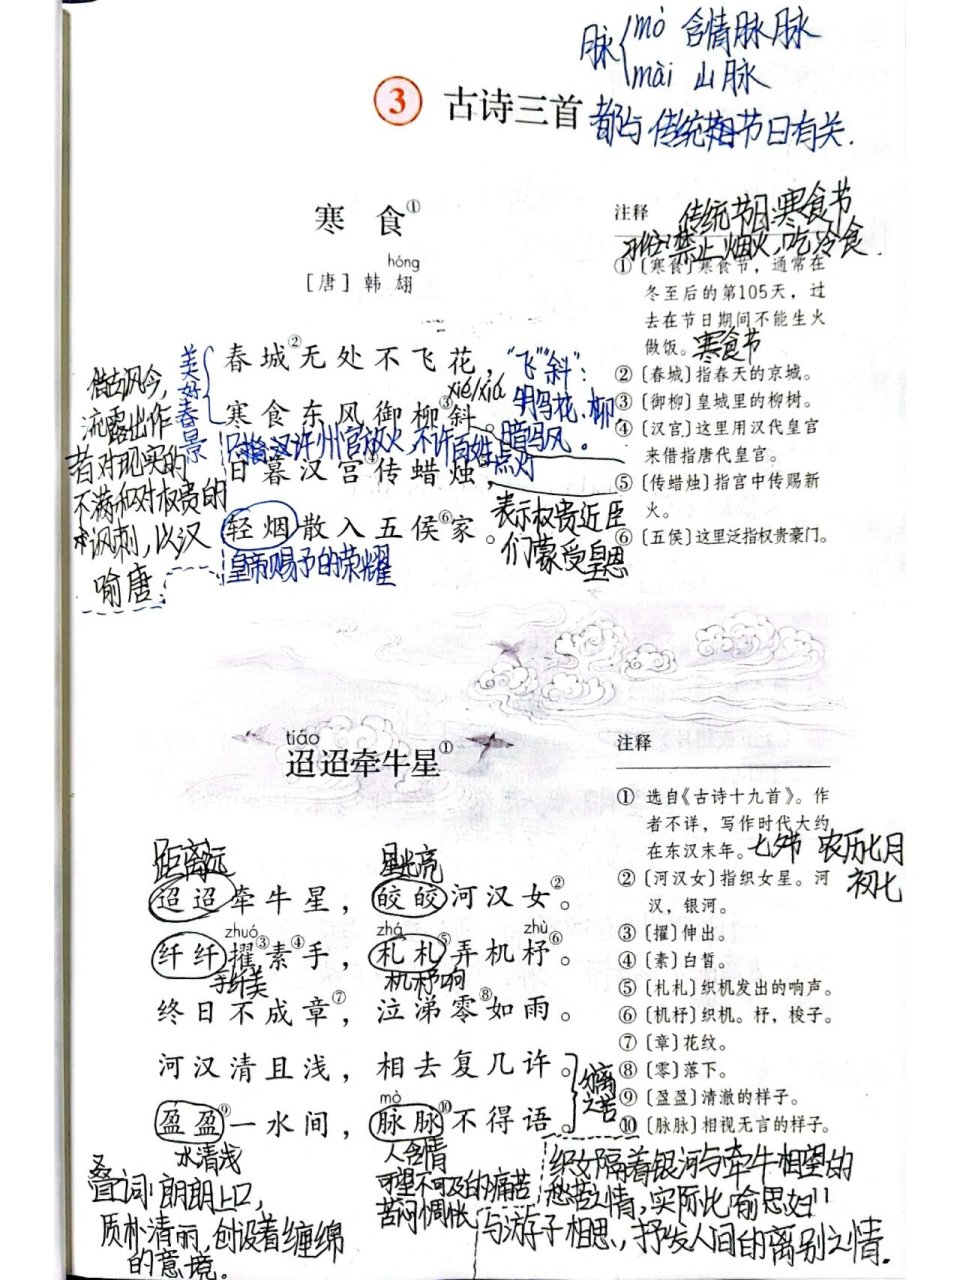 脉 mò 含情脉脉
mài 山脉
③ 古诗三首
都与传统节日有关.
寒 食①
hóng
[唐] 韩 翃
春城②无处不飞花，
xié/xiá
寒食东风御柳③斜。
只准汉许州官放火 不许百姓点灯
日暮汉宫④传蜡烛，
轻烟散入五侯⑥家。
皇帝赐予的荣耀
美好春景
借古风今，
流露出作
者对现实的
不满和对权贵的
讽刺，以汉
喻唐
"飞""斜"：
明写花、柳
暗写风。
表示权贵近臣
们蒙受皇恩
注释
传统节日:寒食节
习俗:禁止烟火,吃冷食
①〔寒食〕寒食节，通常在
冬至后的第105天，过
去在节日期间不能生火
做饭。寒食节
②〔春城〕指春天的京城。
③〔御柳〕皇城里的柳树。
④〔汉宫〕这里用汉代皇宫
来借指唐代皇宫。
⑤〔传蜡烛〕指宫中传赐新
火。
⑥〔五侯〕这里泛指权贵豪门。
tiáo
迢迢牵牛星①
距离远 星光亮
迢迢牵牛星，皎皎河汉女②。
zhuó zhá zhù
纤纤擢③素④手，札札⑤弄机杼⑥。
手纤美 机杼响
终日不成章⑦，泣涕零⑧如雨。
河汉清且浅，相去复几许。
mò
盈盈⑨一水间，脉脉⑩不得语。
分离之苦
水清浅
人含情
可望不可及的痛苦
苦闷惆怅
叠词:朗朗上口，
质朴清丽,创设着缠绵
的意境。
织女隔着银河与牵牛相望的
愁苦之情，实际比喻思妇
与游子相思，抒发人间的离别之情.
注释
① 选自《古诗十九首》。作
者不详，写作时代大约
在东汉末年。七夕节 农历七月
初七
②〔河汉女〕指织女星。河
汉，银河。
③〔擢〕伸出。
④〔素〕白皙。
⑤〔札札〕织机发出的响声。
⑥〔机杼〕织机。杼，梭子。
⑦〔章〕花纹。
⑧〔零〕落下。
⑨〔盈盈〕清澈的样子。
⑩〔脉脉〕相视无言的样子。